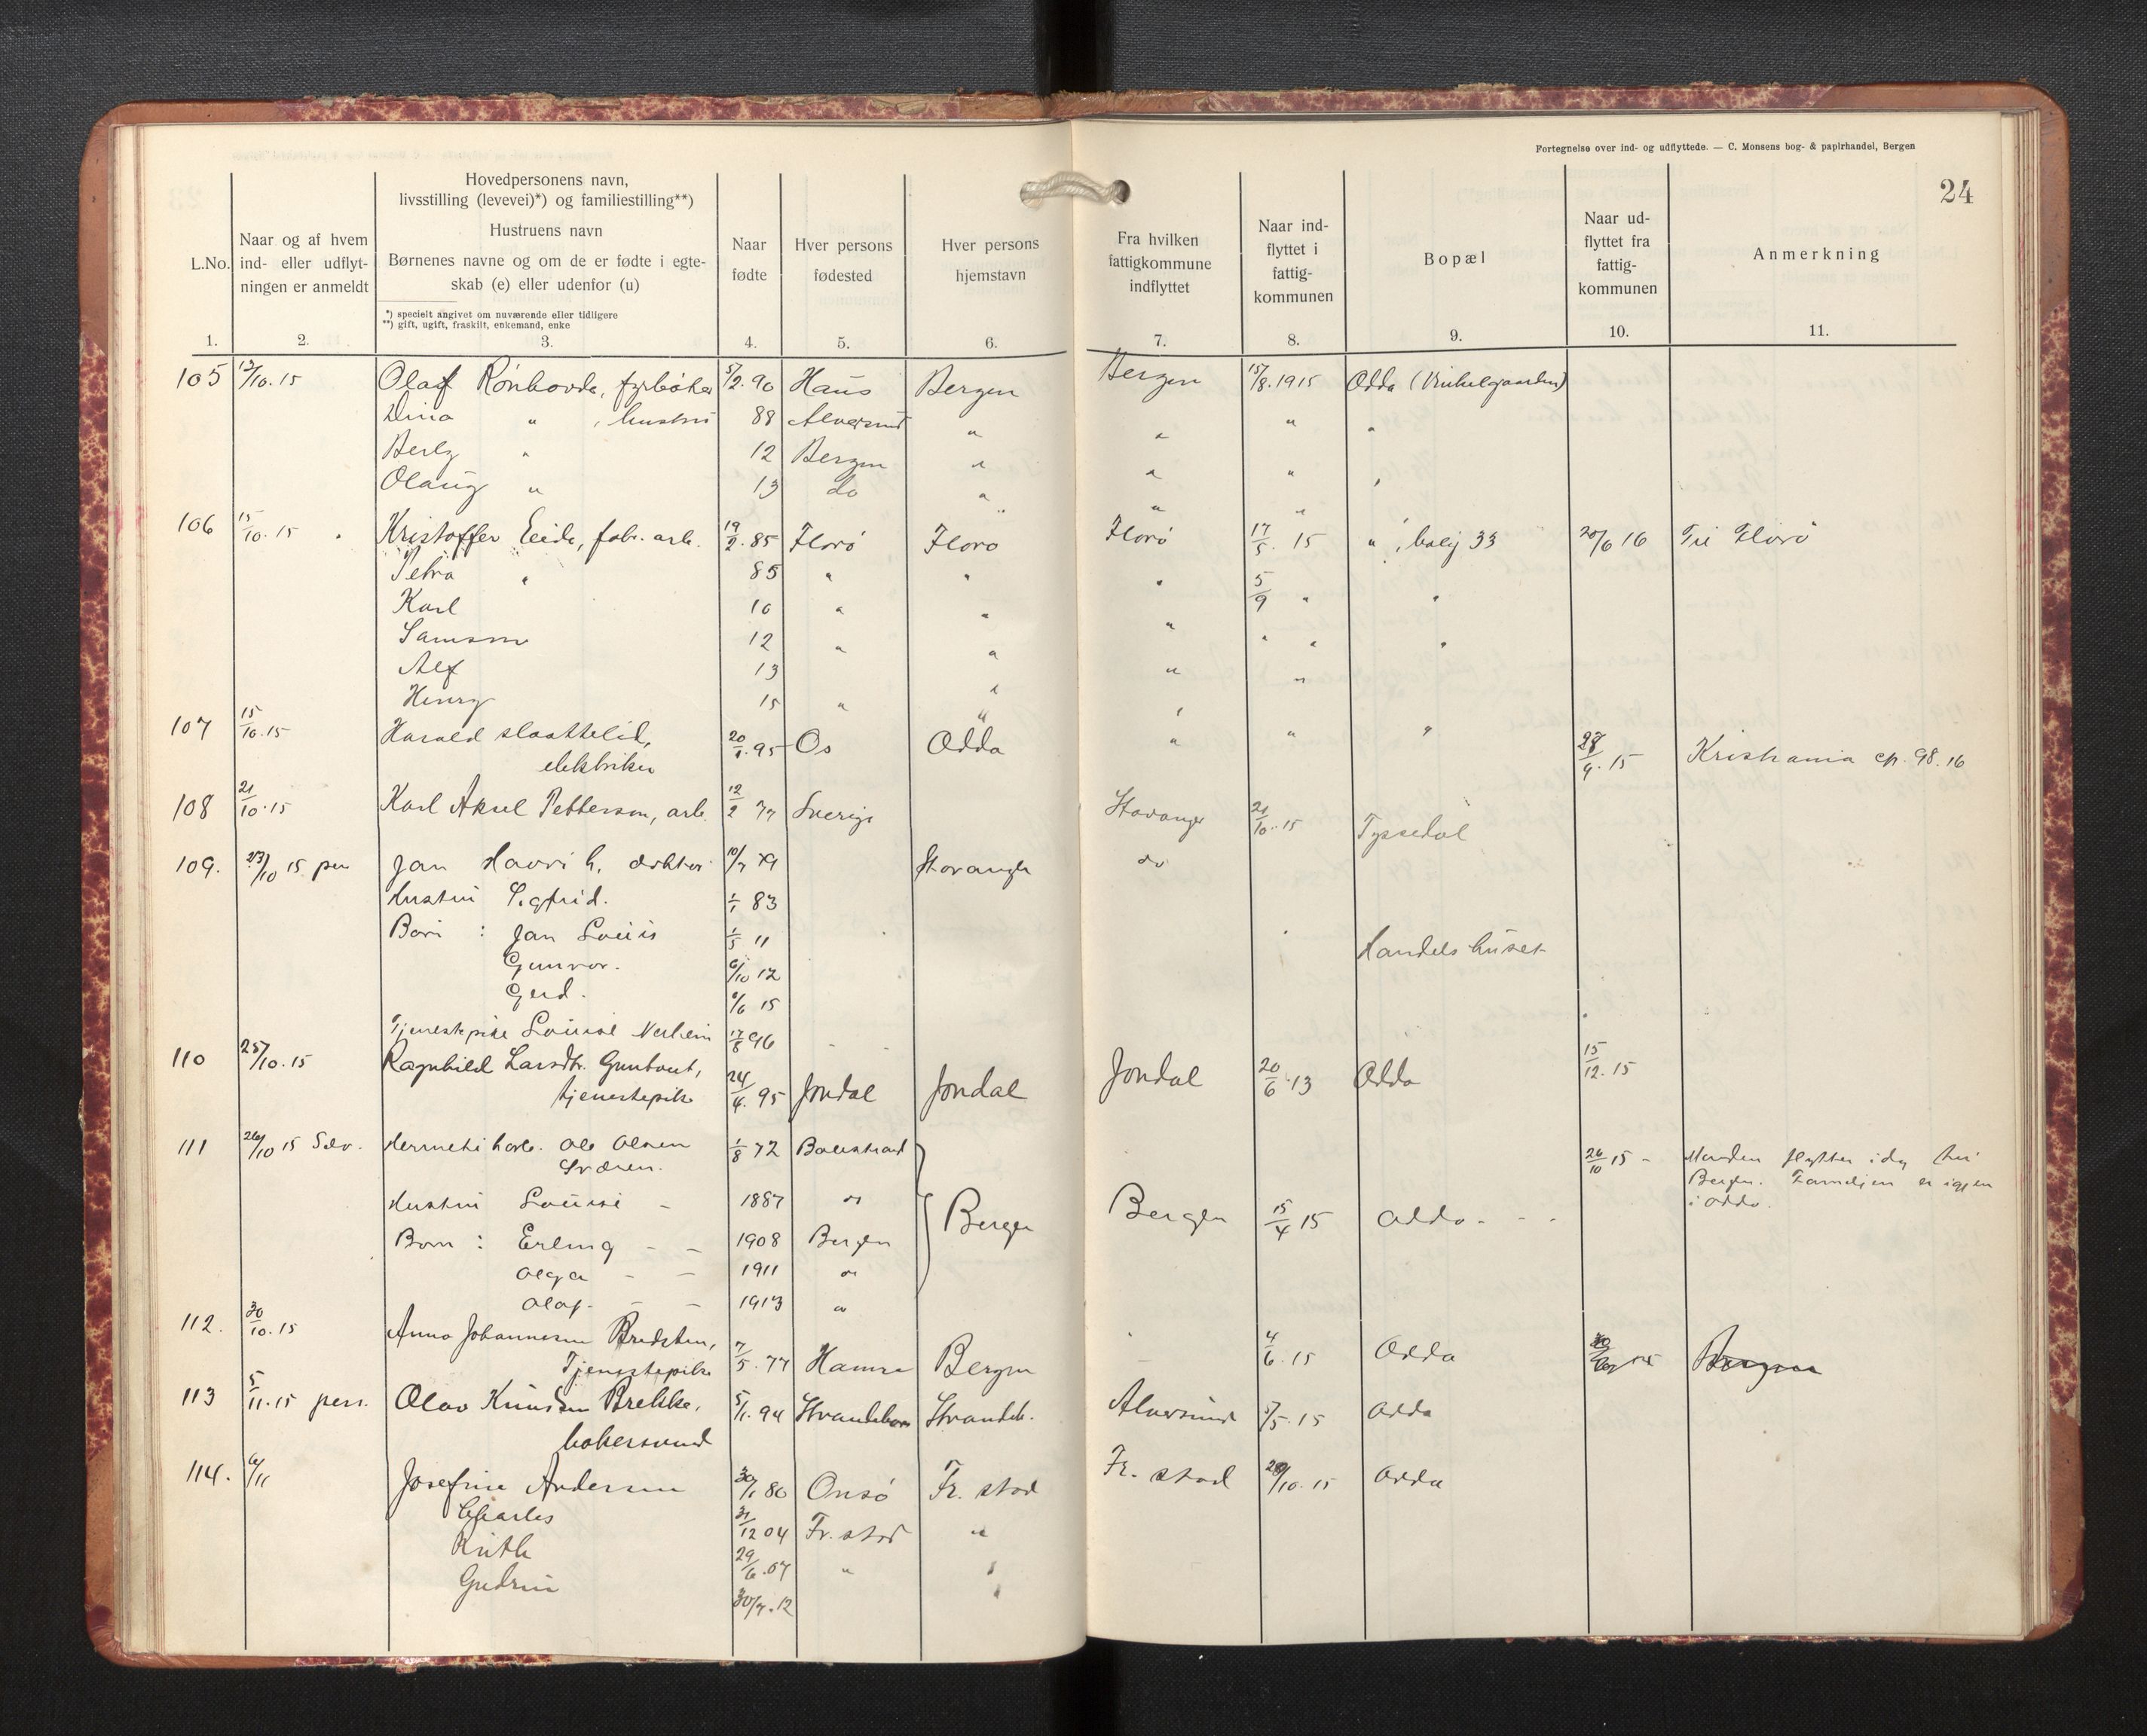 Fortegnelse over ind- og udflyttede. — C. Monsens bog- & papirhandel, Bergen
24
L.No.
Naar og af hvem
ind- eller udflyt-
ningen er anmeldt
Hovedpersonens navn,
livsstilling (levevei)*) og familiestilling**)
Hustruens navn
Børnenes navne og om de er fødte i egte-
skab (e) eller udenfor (u)
*) specielt angivet om nuværende eller tidligere
**) gift, ugift, fraskilt, enkemand, enke
Naar
fødte
Hver persons
fødested
Hver persons
hjemstavn
Fra hvilken
fattigkommune
indflyttet
Naar ind-
flyttet i
fattig-
kommunen
Bopæl
Naar ud-
flyttet fra
fattig-
kommunen
Anmerkning
1. 2. 3. 4. 5. 6. 7. 8. 9. 10. 11.
105 13/10.15 Olaf Rönhovde, fyrbøter 5/2.90 Haus Bergen Bergen 15/8.1915 Odda (Vinkelgaarden)
Dina " , hustru 88 Alversund " " " "
Berly " 12 Bergen " " "
Olaug " 13 do " " "
106 15/10.15 Kristoffer Eide, fabr. arb. 19/2.85 Florö Florö Florö 17/5. 15 " , bolig 33 20/6 16 Til Florö
Petra " 85 " " " 5/9 " "
Karl 10 " " "
Samson 12 " " "
Alf 13 " "
Henry 15 " "
107 15/10.15 Harald Slaattelid, 20/1.95 Os Odda " " " 28/9.15 Kristiania cp. 98.16
elektriker
108 21/10.15 Karl Aksel Petterson, arb. 12/2 77 Sverige Stavanger 21/10.15 Tyssedal
109. 23/10 15 per Jan Havri h, doktor 10/7 79 Stavanger do
Hustru Sigfrid. 1/1 83
Børn : Jan Louis 1/5 11 Handelshuset
Gunvor. 6/10 12
Gerd. 6/6 15
Tjenestepike Louise 17/8 96
110 25/10.15 Ragnhild Larsdtr. 24/4. 95 Jondal Jondal Jondal 20/6 13 Odda 15/12.15
tjenestepike
111 26/10 15 Selv. Ole Olsen 1/8 72 Balestrand 26/10 15 - Manden flytter idag til
Sværen. Bergen. Familjen er igjen
i Odda.
Hustru Louise - 1887 do Bergen Bergen 15/4 15 Odda - - -
Børn : Erling - - 1908 Bergen
Olga - - 1911 do
Olaf - - 1913 do
112. 30/10.15 Anna Johannesen Bredsten, 7/5.77 Hamre Bergen - 4/6.15 Odda Bergen
Tjenestepike
113 5/11.15 pers. Olav Knudsen Brekke, 5/1.94 Strandebarm Strandeb. Alversund 5/5.15 Odda
bakersvend
114. 6/11 Josefine Andersen 30/1 80 Onsö Fr. stad Fr. stad 29/10.15 Odda
Charles 31/12 04 Fr. stad "
Ruth 29/6.07 " "
Gudrun 30/7.12 "